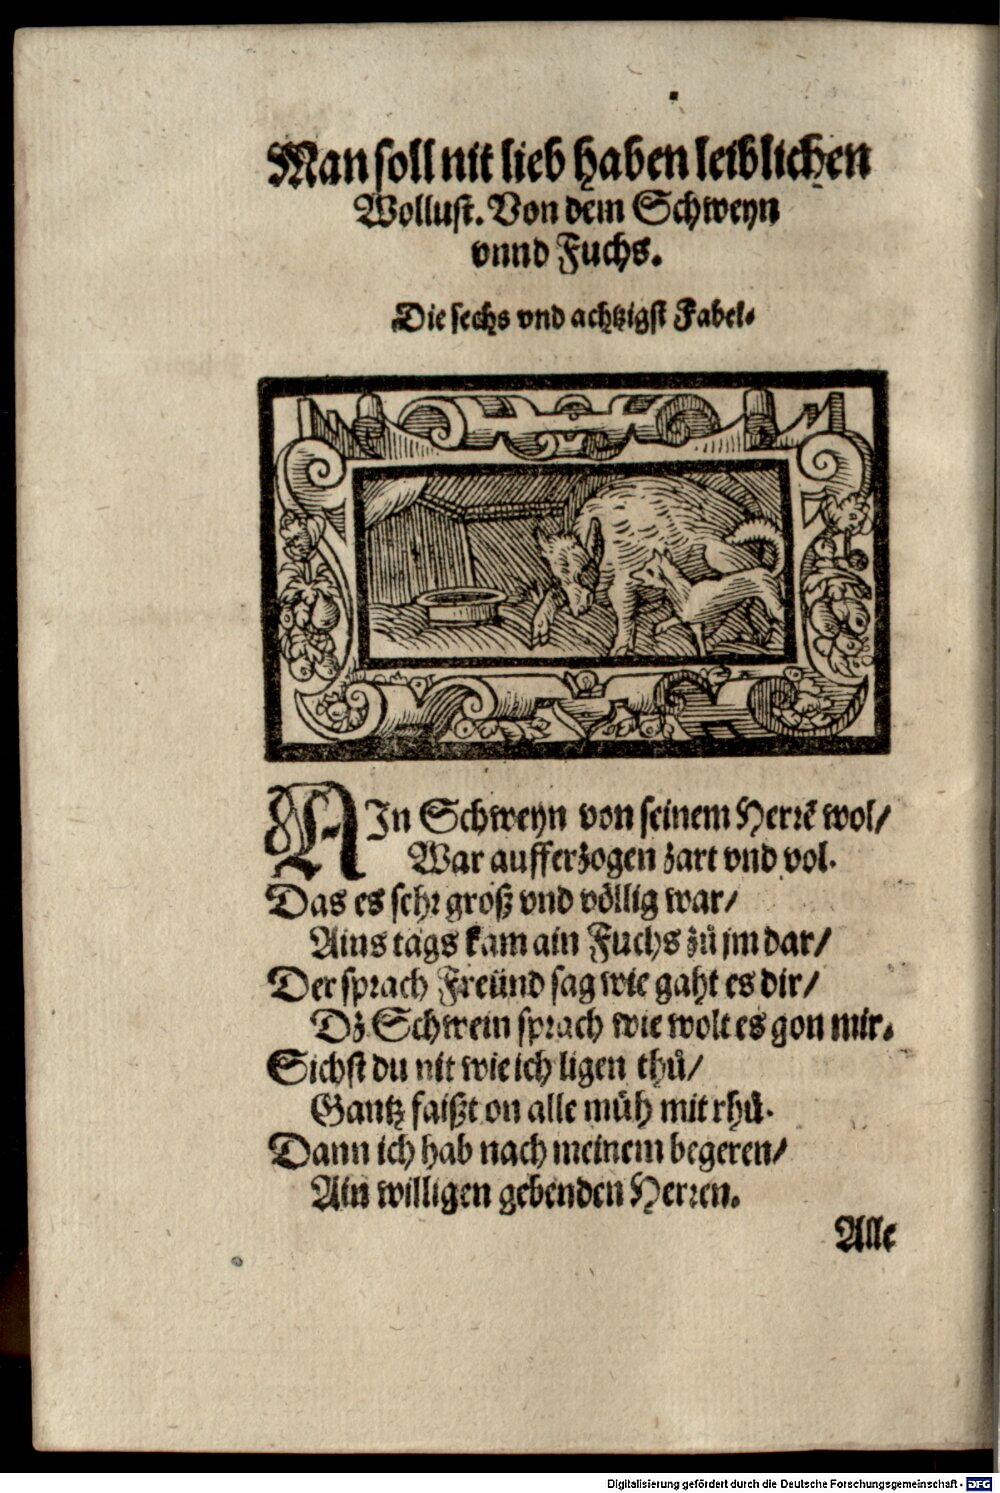 Man soll nit lieb haben leiblichen
Wollust. Von dem Schweyn
vnnd Fuchs.
Die sechs vnd achtzigst Fabel.
AIn Schweyn von seinem Herrẽ wol/
War aufferzogen zart vnd vol.
Das es sehr groß vnd völlig war/
Ains tags kam ain Fuchs zů jm dar/
Der sprach Freünd sag wie gaht es dir/
Dz Schwein sprach wie wolt es gon mir.
Sichst du nit wie ich ligen thů/
Gantz faißt on alle müh mit rhů.
Dann ich hab nach meinem begeren/
Ain willigen gebenden Herren.
Alle
Digitalisierung gefördert durch die Deutsche Forschungsgemeinschaft - DFG